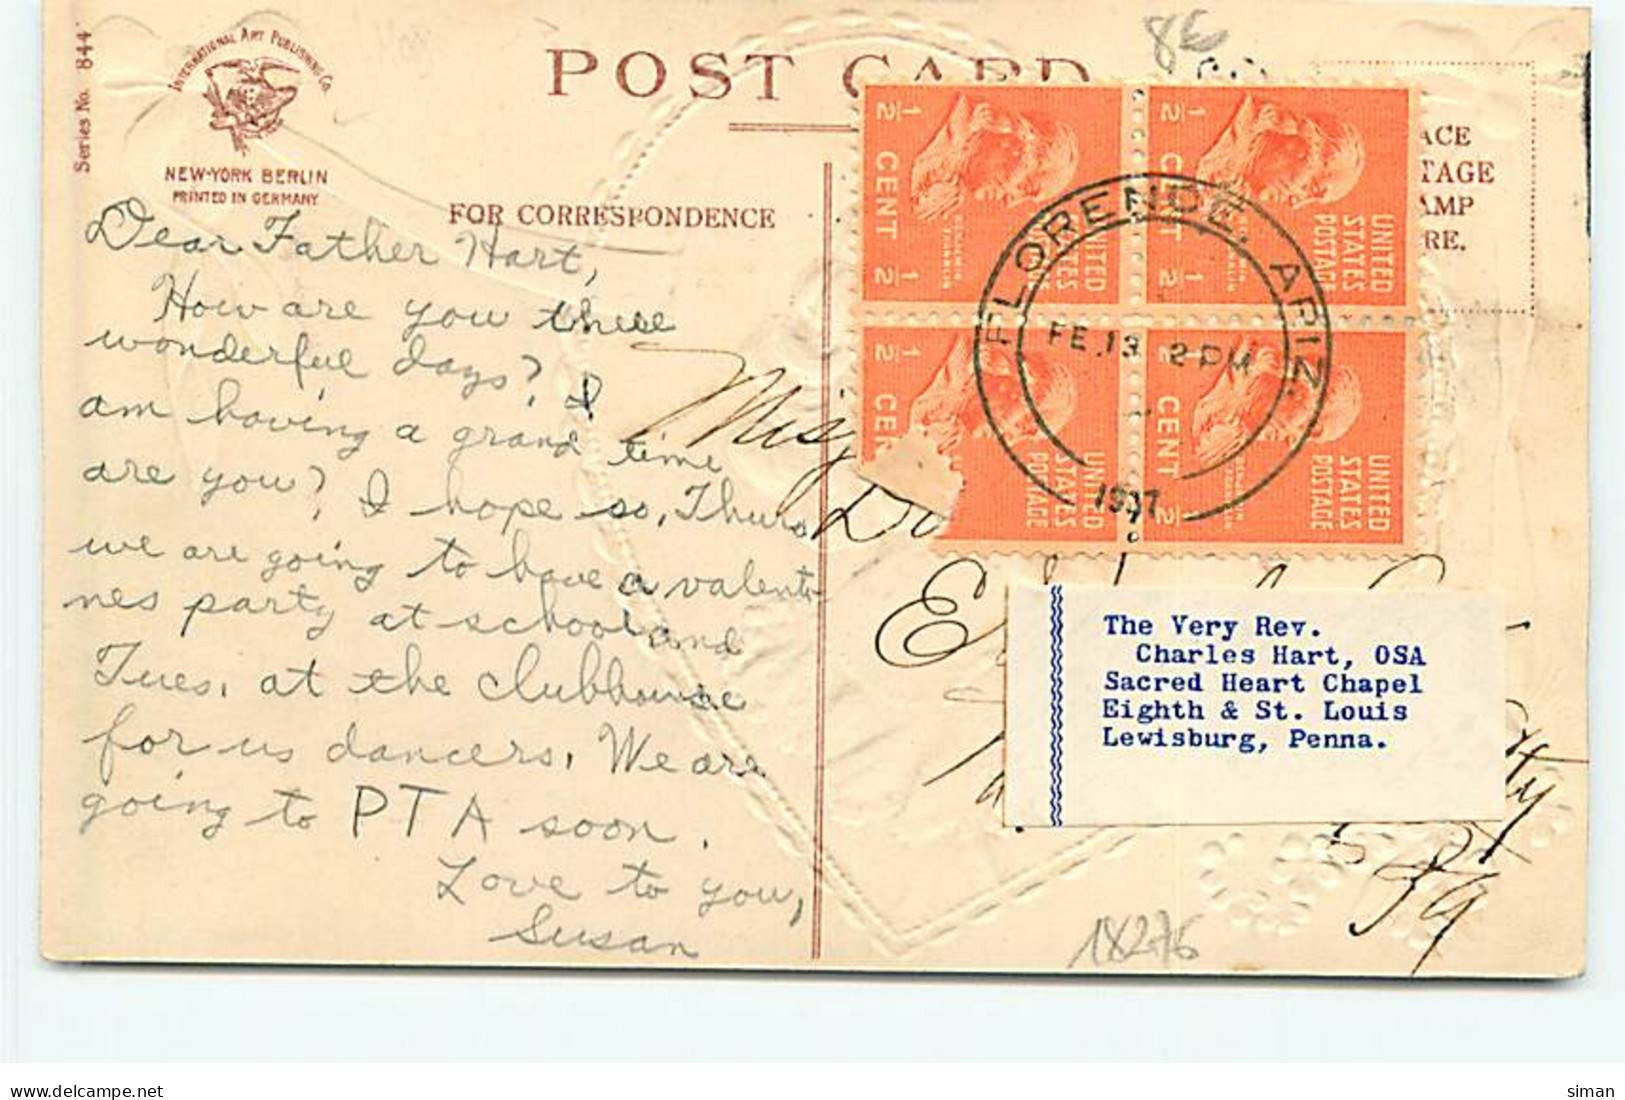 Series No. 844
INTERNATIONAL ART PUBLISHING Co.
NEW-YORK BERLIN
PRINTED IN GERMANY
POST CARD
8€
FOR CORRESPONDENCE
ACE
TAGE
AMP
RE.
1/2 CENT 1/2
BENJAMIN FRANKLIN
UNITED STATES POSTAGE
1/2 CENT 1/2
BENJAMIN FRANKLIN
UNITED STATES POSTAGE
1/2
UNITED STATES POSTAGE
1/2 CENT 1/2
BENJAMIN FRANKLIN
UNITED STATES POSTAGE
FLORENCE, ARIZ.
FE 13 2 PM
Dear Father Hart,
How are you these
wonderful days? I
am having a grand time
are you? I hope so. Thurs
we are going to have a valenti
nes party at school and
Tues. at the clubhouse
for us dancers. We are
going to PTA soon.
Love to you,
Susan
Miss
The Very Rev.
Charles Hart, OSA
Sacred Heart Chapel
Eighth & St. Louis
Lewisburg, Penna.
18276
delcampe.net
siman